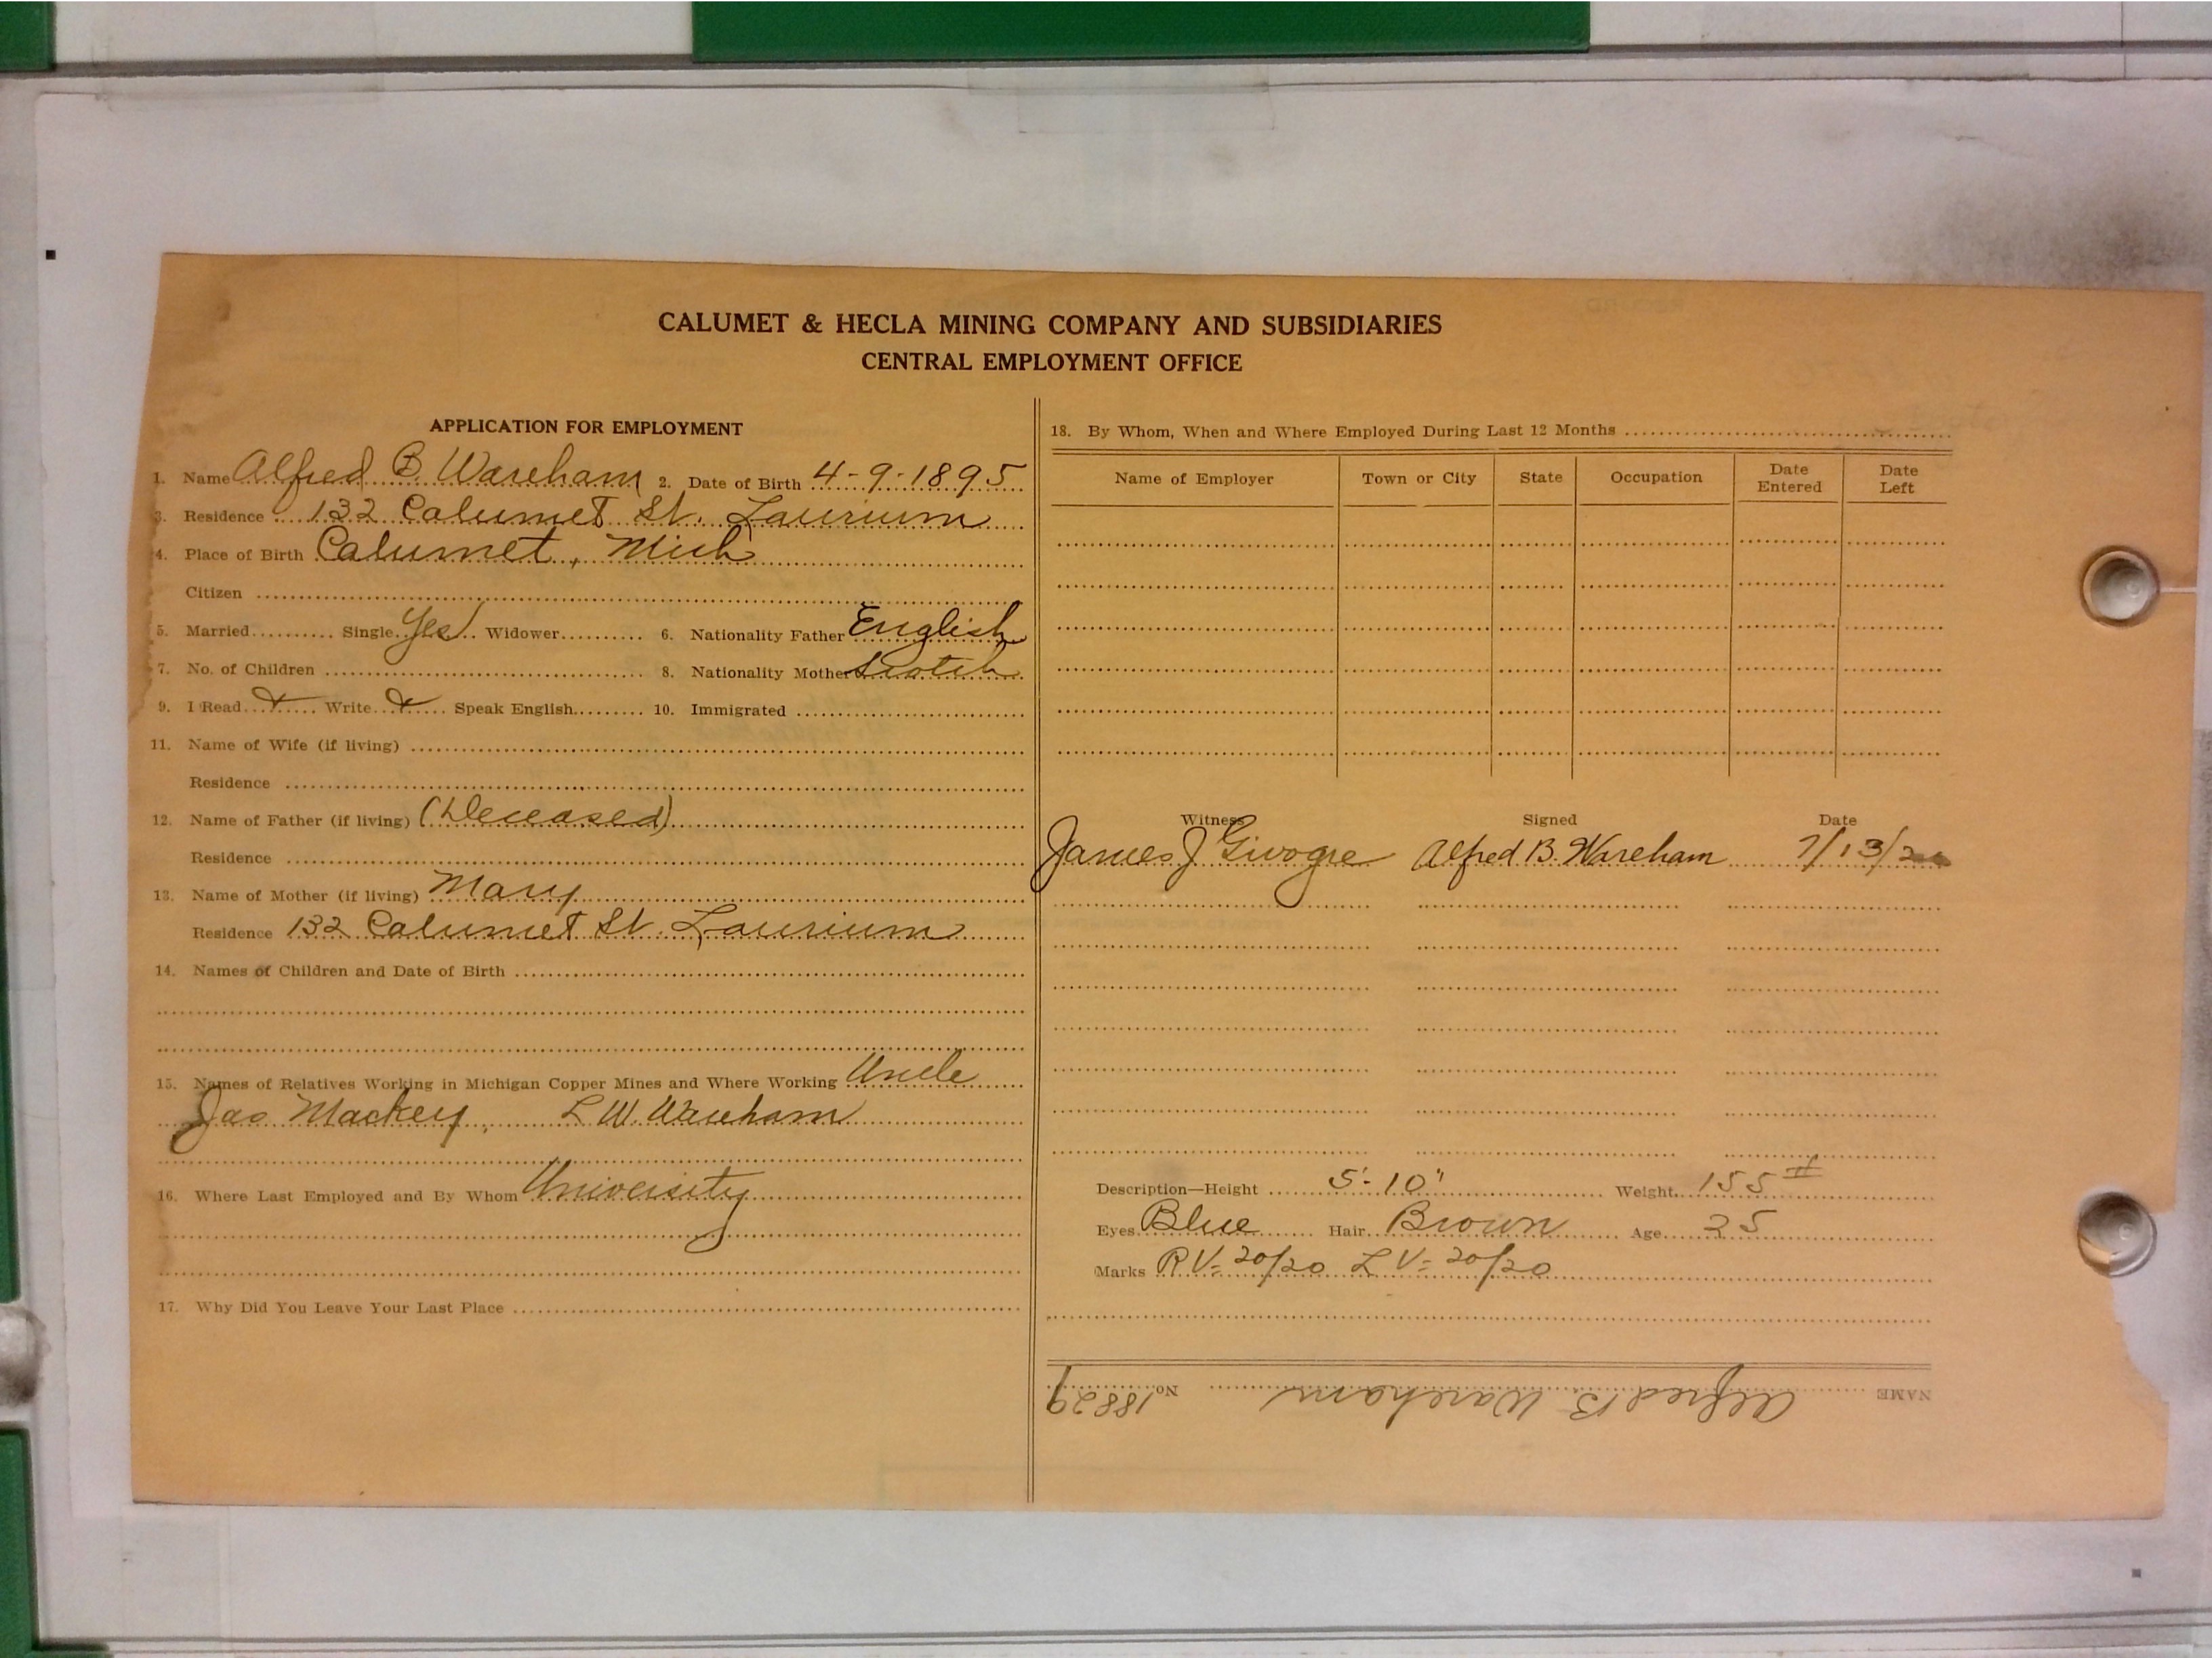 CALUMET & HECLA MINING COMPANY AND SUBSIDIARIES
CENTRAL EMPLOYMENT OFFICE
APPLICATION FOR EMPLOYMENT
1. Name Alfred B. Wareham 2. Date of Birth 4-9-1895
3. Residence 132 Calumet St. Laurium
4. Place of Birth Calumet, Mich
Citizen
5. Married Single Yes Widower 6. Nationality Father English
7. No. of Children 8. Nationality Mother Scotch
9. I Read Write Speak English 10. Immigrated
11. Name of Wife (if living)
Residence
12. Name of Father (if living) (Deceased)
Residence
13. Name of Mother (if living) Mary
Residence 132 Calumet St. Laurium
14. Names of Children and Date of Birth
15. Names of Relatives Working in Michigan Copper Mines and Where Working Uncle
Jas Mackey, L W. Wareham
16. Where Last Employed and By Whom University
17. Why Did You Leave Your Last Place
18. By Whom, When and Where Employed During Last 12 Months
Name of Employer Town or City State Occupation Date Entered Date Left
Witness Signed Date
James J Alfred B. Wareham 7/13/
Description—Height 5'-10" Weight 155 #
Eyes Blue Hair Brown Age 25
Marks R V= 20/20 L V= 20/20
NAME Alfred B Wareham No 18829